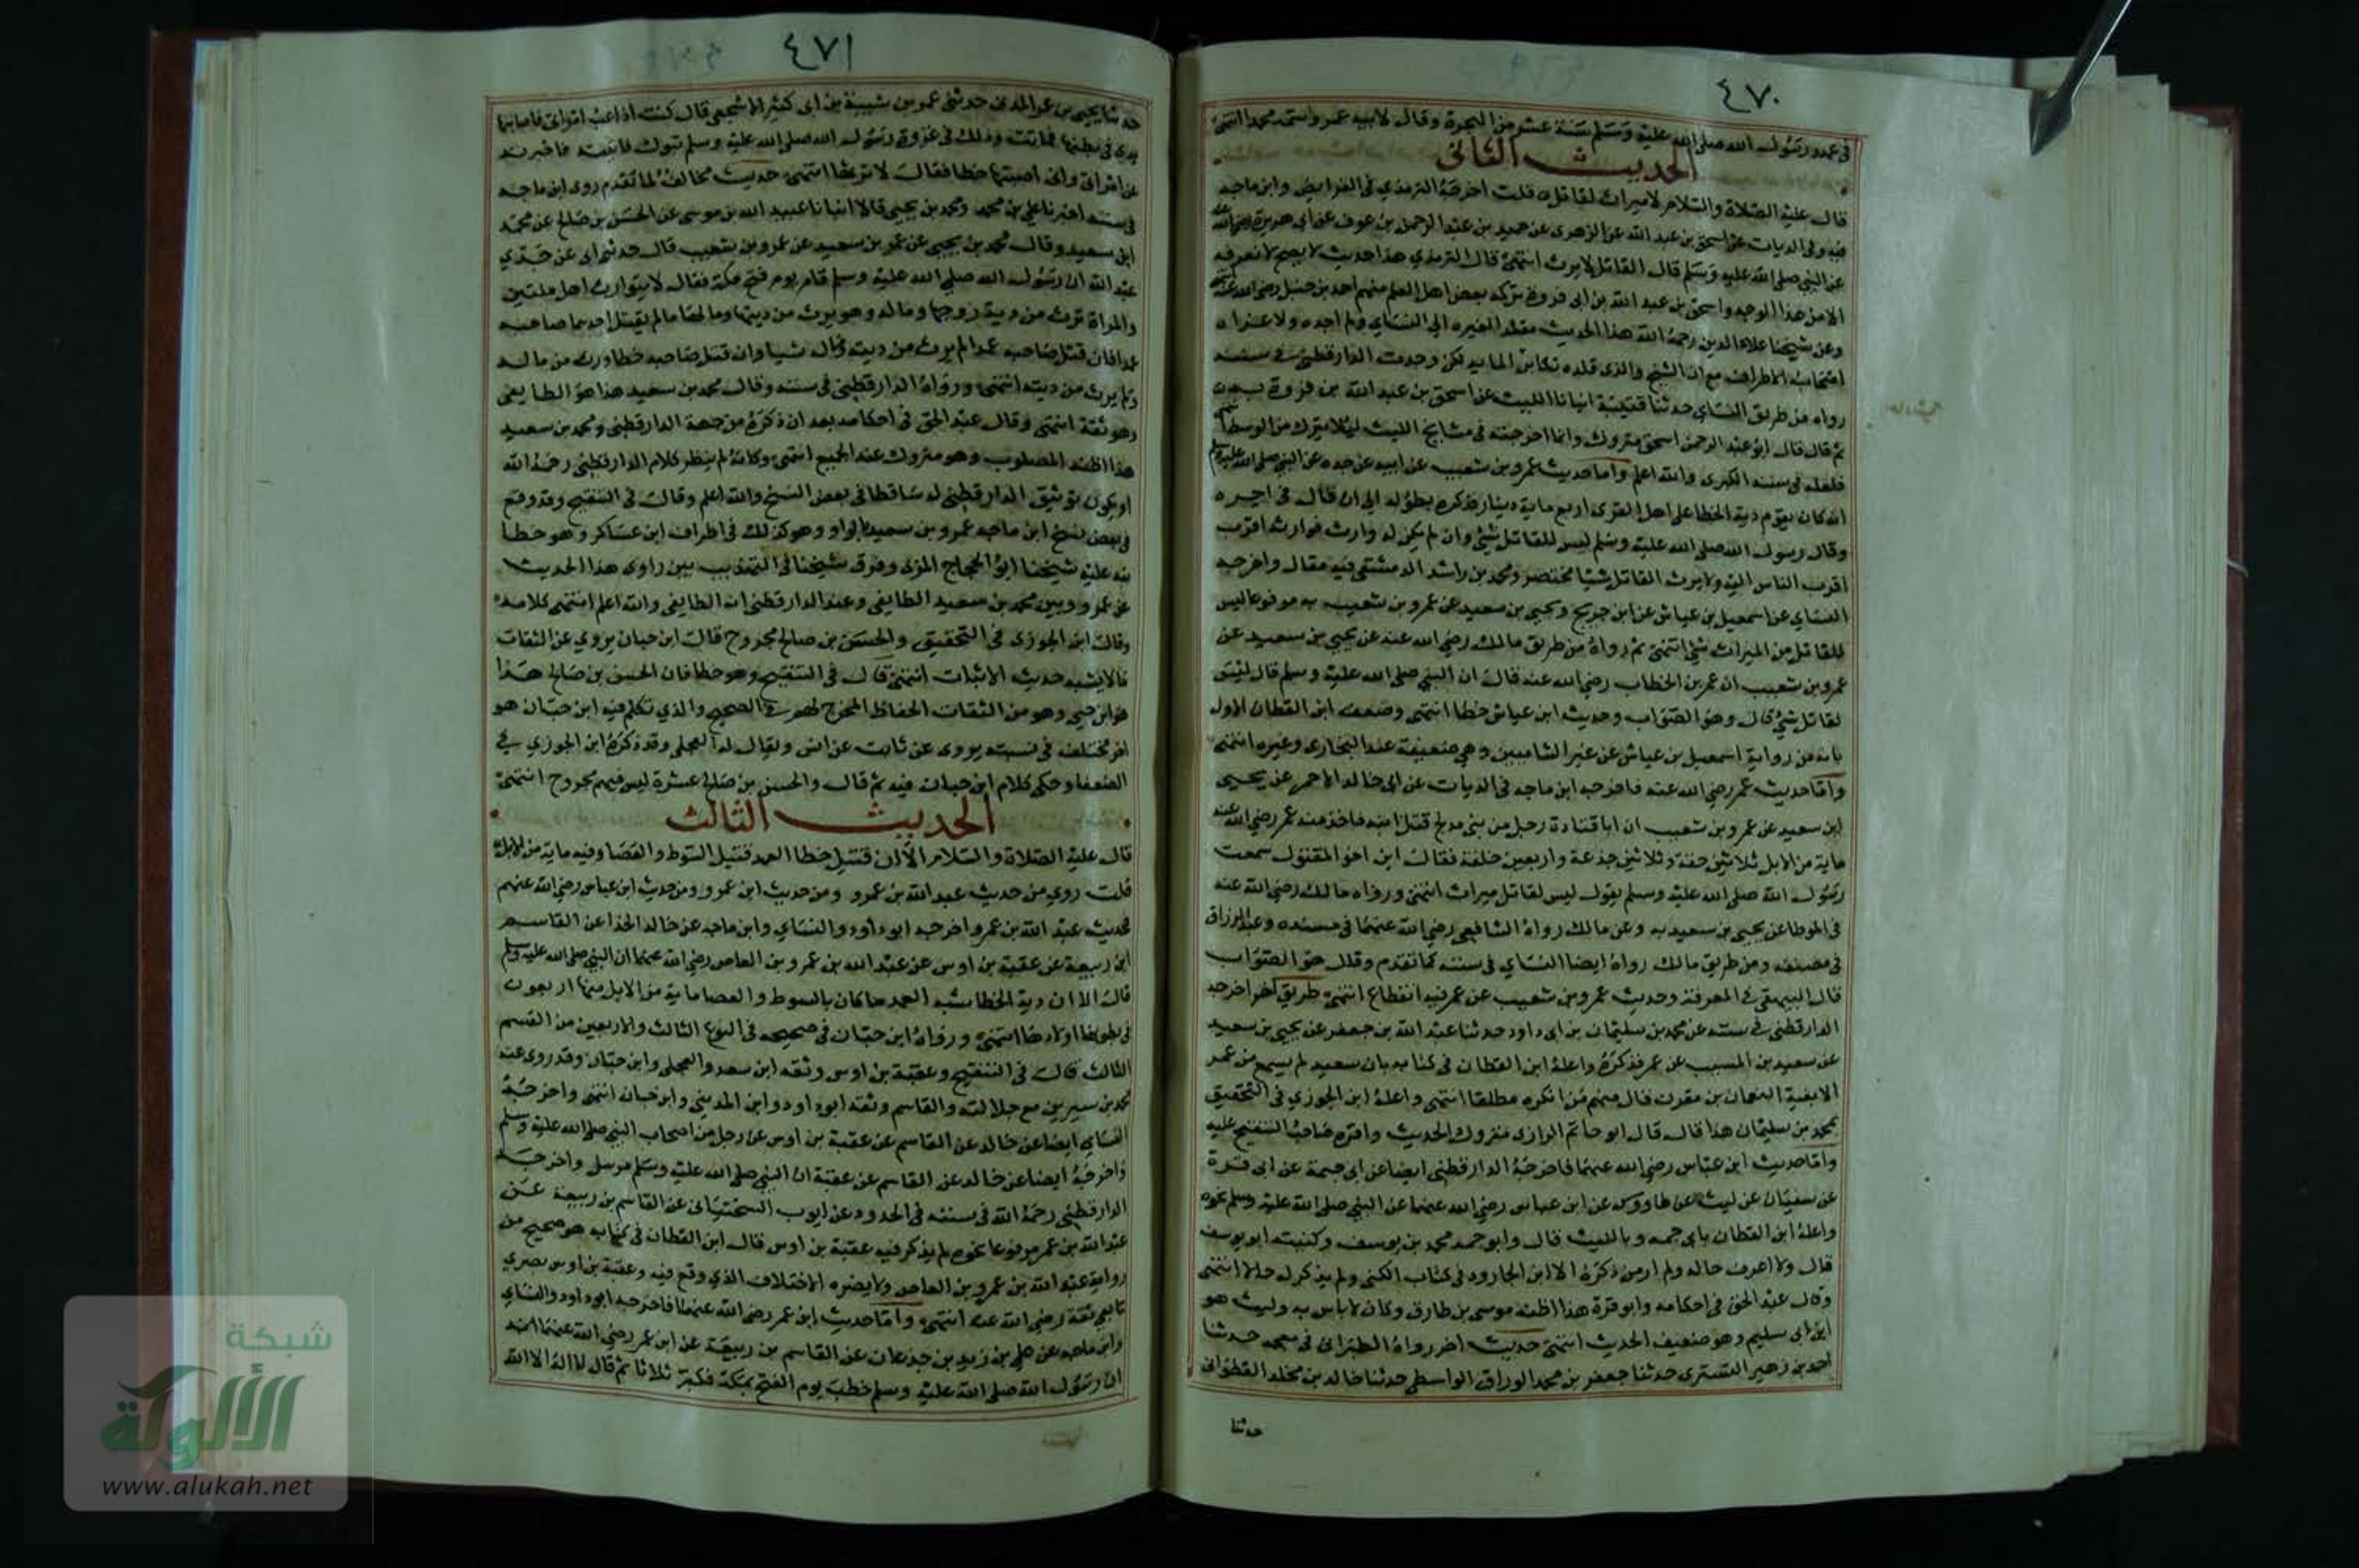 ٤٧٠
في عهد رسول الله صلى الله عليه وسلم سنة عشر من الهجرة وقال لابيه عمرو اسمه محمدا انتهى
الحديث الثاني
قال عليه الصلاة والسلام لا ميراث لقاتل قلت اخرجه الترمذي في الفرايض وابن ماجه
فيه وفي الديات عن اسحق بن عبد الله عن الزهري عن حميد بن عبد الرحمن بن عوف عن ابي هريرة رضي الله عنه
عن النبي صلى الله عليه وسلم قال القاتل لا يرث انتهى قال الترمذي هذا حديث لا يصح لا نعرفه
الا من هذا الوجه واسحق بن عبد الله بن ابي فروة تركه بعض اهل العلم منهم احمد بن حنبل رضي الله عنه انتهى
وعن شيخنا علاء الدين رحمه الله هذا الحديث مقلدا لغيره الي النساي ولم اجده ولا عزاه
اصحاب الاطراف مع ان الشيخ والذي قلده لكن وجدت الدارقطني في سننه
رواه من طريق النساي حدثنا قتيبة انبانا الليث عن اسحق بن عبد الله بن فروة به
ثم قال قال ابو عبد الرحمن اسحق متروك وانما اخرجته في مشايخ الليث ليلا يترك من الوسط انتهى
فلعله في سننه الكبرى والله اعلم واما حديث عمرو بن شعيب عن ابيه عن جده عن النبي صلى الله عليه وسلم
انه كان يقوم دية الخطا على اهل القرى اربع ماية دينار فذكره بطوله الى ان قال في اخره
وقال رسول الله صلى الله عليه وسلم ليس للقاتل شيء وان لم يكن له وارث فوارثه اقرب
اقرب الناس اليه ولا يرث القاتل شيئا مختصر ومحمد بن راشد الدمشقي فيه مقال واخرجه
النساي عن اسمعيل بن عياش عن ابن جريج ويحيى بن سعيد عن عمرو بن شعيب به مرفوعا ليس
للقاتل من الميراث شيء انتهى ثم رواه من طريق مالك رضي الله عنه عن يحيى بن سعيد عن
عمرو بن شعيب ان عمر بن الخطاب رضي الله عنه قال ان النبي صلى الله عليه وسلم قال ليس
لقاتل شيء قال وهو الصواب وحديث ابن عياش خطا انتهى وضعف ابن القطان الاول
بانه من رواية اسمعيل بن عياش عن غير الشاميين وهي ضعيفة عند البخاري وغيره انتهى
واما حديث عمر رضي الله عنه فاخرجه ابن ماجه في الديات عن ابي خالد الاحمر عن يحيى
ابن سعيد عن عمرو بن شعيب ان ابا قتادة رجل من بني مدلج قتل ابنه فاخذ منه عمر رضي الله عنه
ماية من الابل ثلاثين حقة وثلاثين جذعة واربعين خلفة فقال ابن اخو المقتول سمعت
رسول الله صلى الله عليه وسلم يقول ليس لقاتل ميراث انتهى ورواه مالك رضي الله عنه
في الموطا عن يحيى بن سعيد به وعن مالك رواه الشافعي رضي الله عنهما في مسنده وعبد الرزاق
في مصنفه ومن طريق مالك رواه ايضا النساي في سننه كما تقدم وقال هو الصواب
قال البيهقي في المعرفة وحديث عمرو بن شعيب عن عمر فيه انقطاع انتهى طريق اخر اخرجه
الدارقطني في سننه عن محمد بن سليمان بن ابي داود حدثنا عبد الله بن جعفر عن يحيى بن سعيد
عن سعيد بن المسيب عن عمر فذكره واعله ابن القطان في كتابه بان سعيد لم يسمع من عمر
الا نعيه النعمان بن مقرن قال منهم من انكره مطلقا انتهى واعله ابن الجوزي في التحقيق
بمحمد بن سليمان هذا قال قال ابو حاتم الرازي متروك الحديث واقره صاحب التنقيح عليه
واما حديث ابن عباس رضي الله عنهما فاخرجه الدارقطني ايضا عن ابي حمة عن ابي قرة
عن سفيان عن ليث عن طاووس عن ابن عباس رضي الله عنهما عن النبي صلى الله عليه وسلم نحوه
واعله ابن القطان بابي حمه وبالليث قال وابو حمه محمد بن يوسف وكنيته ابو يوسف
قال ولا اعرف حاله ولم ار من ذكره الا ابن الجارود في كتاب الكنى ولم يذكر له حالا انتهى
وقال عبد الحق في احكامه وابو قرة هذا اظنه موسى بن طارق وكان لا باس به وليث هو
ابن ابي سليم وهو ضعيف الحديث انتهى حديث اخر رواه الطبراني في معجمه حدثنا
احمد بن زهير التستري حدثنا جعفر بن محمد الوراق الواسطي حدثنا خالد بن مخلد القطواني
حدثنا
٤٧١
حدثنا يحيى بن عمر المدني حدثني عمر بن شيبة بن ابي كثير الاشجعي قال كنت اداعب امراتي فاصابها
يدي في بطنها فماتت وذلك في غزوة رسول الله صلى الله عليه وسلم تبوك فاتيته فاخبرته
عن امراتي واني اصبتها خطا فقال لا ترثها انتهى حديث مخالف لما تقدم روى ابن ماجه
في سننه اخبرنا علي بن محمد ومحمد بن يحيى قالا انبانا عبيد الله بن موسى عن الحسن بن صالح عن محمد
ابن سعيد وقال محمد بن يحيى عن عمر بن سعيد عن عمرو بن شعيب قال حدثني ابي عن جدي
عبد الله ان رسول الله صلى الله عليه وسلم قام يوم فتح مكة فقال لا يتوارث اهل ملتين
والمراة ترث من دية زوجها وماله وهو يرث من ديتها ومالها ما لم يقتل احدهما صاحبه
عمدا فان قتل صاحبه عمدا لم يرث من ديته وماله شيا وان قتل صاحبه خطا ورث من ماله
ولم يرث من ديته انتهى ورواه الدارقطني في سننه وقال محمد بن سعيد هذا هو الطايفي
وهو ثقة انتهى وقال عبد الحق في احكامه بعد ان ذكره من جهة الدارقطني ومحمد بن سعيد
هذا اظنه المصلوب وهو متروك عند الجميع انتهى وكانه لم ينظر كلام الدارقطني رحمه الله
او يكون توثيق الدارقطني له ساقطا في بعض النسخ والله اعلم وقال في التنقيح وقد وقع
في بعض نسخ ابن ماجه عمرو بن سعيد بالواو وهو كذلك في اطراف ابن عساكر وهو خطا
نبه عليه شيخنا ابو الحجاج المزي وفرق شيخنا في التهذيب بين راوي هذا الحديث
عن عمرو وبين محمد بن سعيد الطايفي وعند الدارقطني انه الطايفي والله اعلم انتهى كلامه
وقال ابن الجوزي في التحقيق والحسن بن صالح مجروح قال ابن حبان يروي عن الثقات
مالا يشبه حديث الاثبات انتهى قال في التنقيح وهو خطا فان الحسن بن صالح هذا
هو ابن حيي وهو من الثقات الحفاظ المخرج لهم في الصحيح والذي تكلم فيه ابن حبان هو
اخر مختلف في نسبته يروى عن ثابت عن انس ويقال له العجلي وقد ذكره ابن الجوزي في
الضعفا وحكى كلام ابن حبان فيه ثم قال والحسن بن صالح عشرة ليس فيهم مجروح انتهى
الحديث الثالث
قال عليه الصلاة والسلام الا ان قتيل خطا العمد قتيل السوط والعصا وفيه ماية من الابل
قلت روي من حديث عبد الله بن عمرو ومن حديث ابن عمر ومن حديث ابن عباس رضي الله عنهم
فحديث عبد الله بن عمرو اخرجه ابو داود والنساي وابن ماجه عن خالد الحذا عن القاسم
ابن ربيعة عن عقبة بن اوس عن عبد الله بن عمرو بن العاص رضي الله عنهما ان النبي صلى الله عليه وسلم
قال الا ان دية الخطا شبه العمد ما كان بالسوط والعصا ماية من الابل منها اربعون
في بطونها اولادها انتهى ورواه ابن حبان في صحيحه في النوع الثالث والاربعين من القسم
الثالث قال في التنقيح وعقبة بن اوس وثقه ابن سعد والعجلي وابن حبان وقد روى عنه
محمد بن سيرين مع جلالته والقاسم وثقه ابو داود وابن المديني وابن حبان انتهى واخرجه
النساي ايضا عن خالد عن القاسم عن عقبة بن اوس عن رجل من اصحاب النبي صلى الله عليه وسلم
واخرجه ايضا عن خالد عن القاسم عن عقبة ان النبي صلى الله عليه وسلم مرسل واخرجه
الدارقطني رحمه الله في سننه في الحدود عن ايوب السختياني عن القاسم بن ربيعة عن
عبد الله بن عمر مرفوعا نحوه لم يذكر فيه عقبة بن اوس قال ابن القطان في كتابه هو صحيح من
رواية عبد الله بن عمرو بن العاص ولا يضره الاختلاف الذي وقع فيه وعقبة بن اوس بصري
تابعي ثقة رضي الله عنه انتهى واما حديث ابن عمر رضي الله عنهما فاخرجه ابو داود والنساي
وابن ماجه عن علي بن زيد بن جدعان عن القاسم بن ربيعة عن ابن عمر رضي الله عنهما
ان رسول الله صلى الله عليه وسلم خطب يوم الفتح بمكة فكبر ثلاثا ثم قال لا اله الا الله
شبكة
الألوكة
www.alukah.net